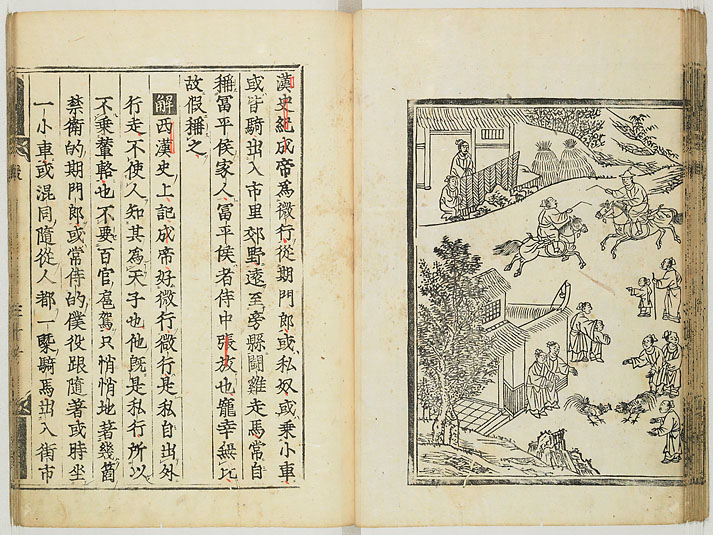 漢史紀成帝爲微行從期門郎或私奴或乗小車
或皆騎出入市里郊野遠至旁縣鬪雞走馬常自
稱冨平侯家人冨平侯者侍中張放也寵幸無比
故假稱之
解西漢史上記成帝好微行微行是私自出外
行走不使人知其為天子也他旣是私行所以
不乗輦輅也不要百官扈駕只悄悄地著幾箇
禁衛的期門郎或常侍的僕役跟隨著或時坐
一小車或混同隨從人都一槩騎馬出入街市